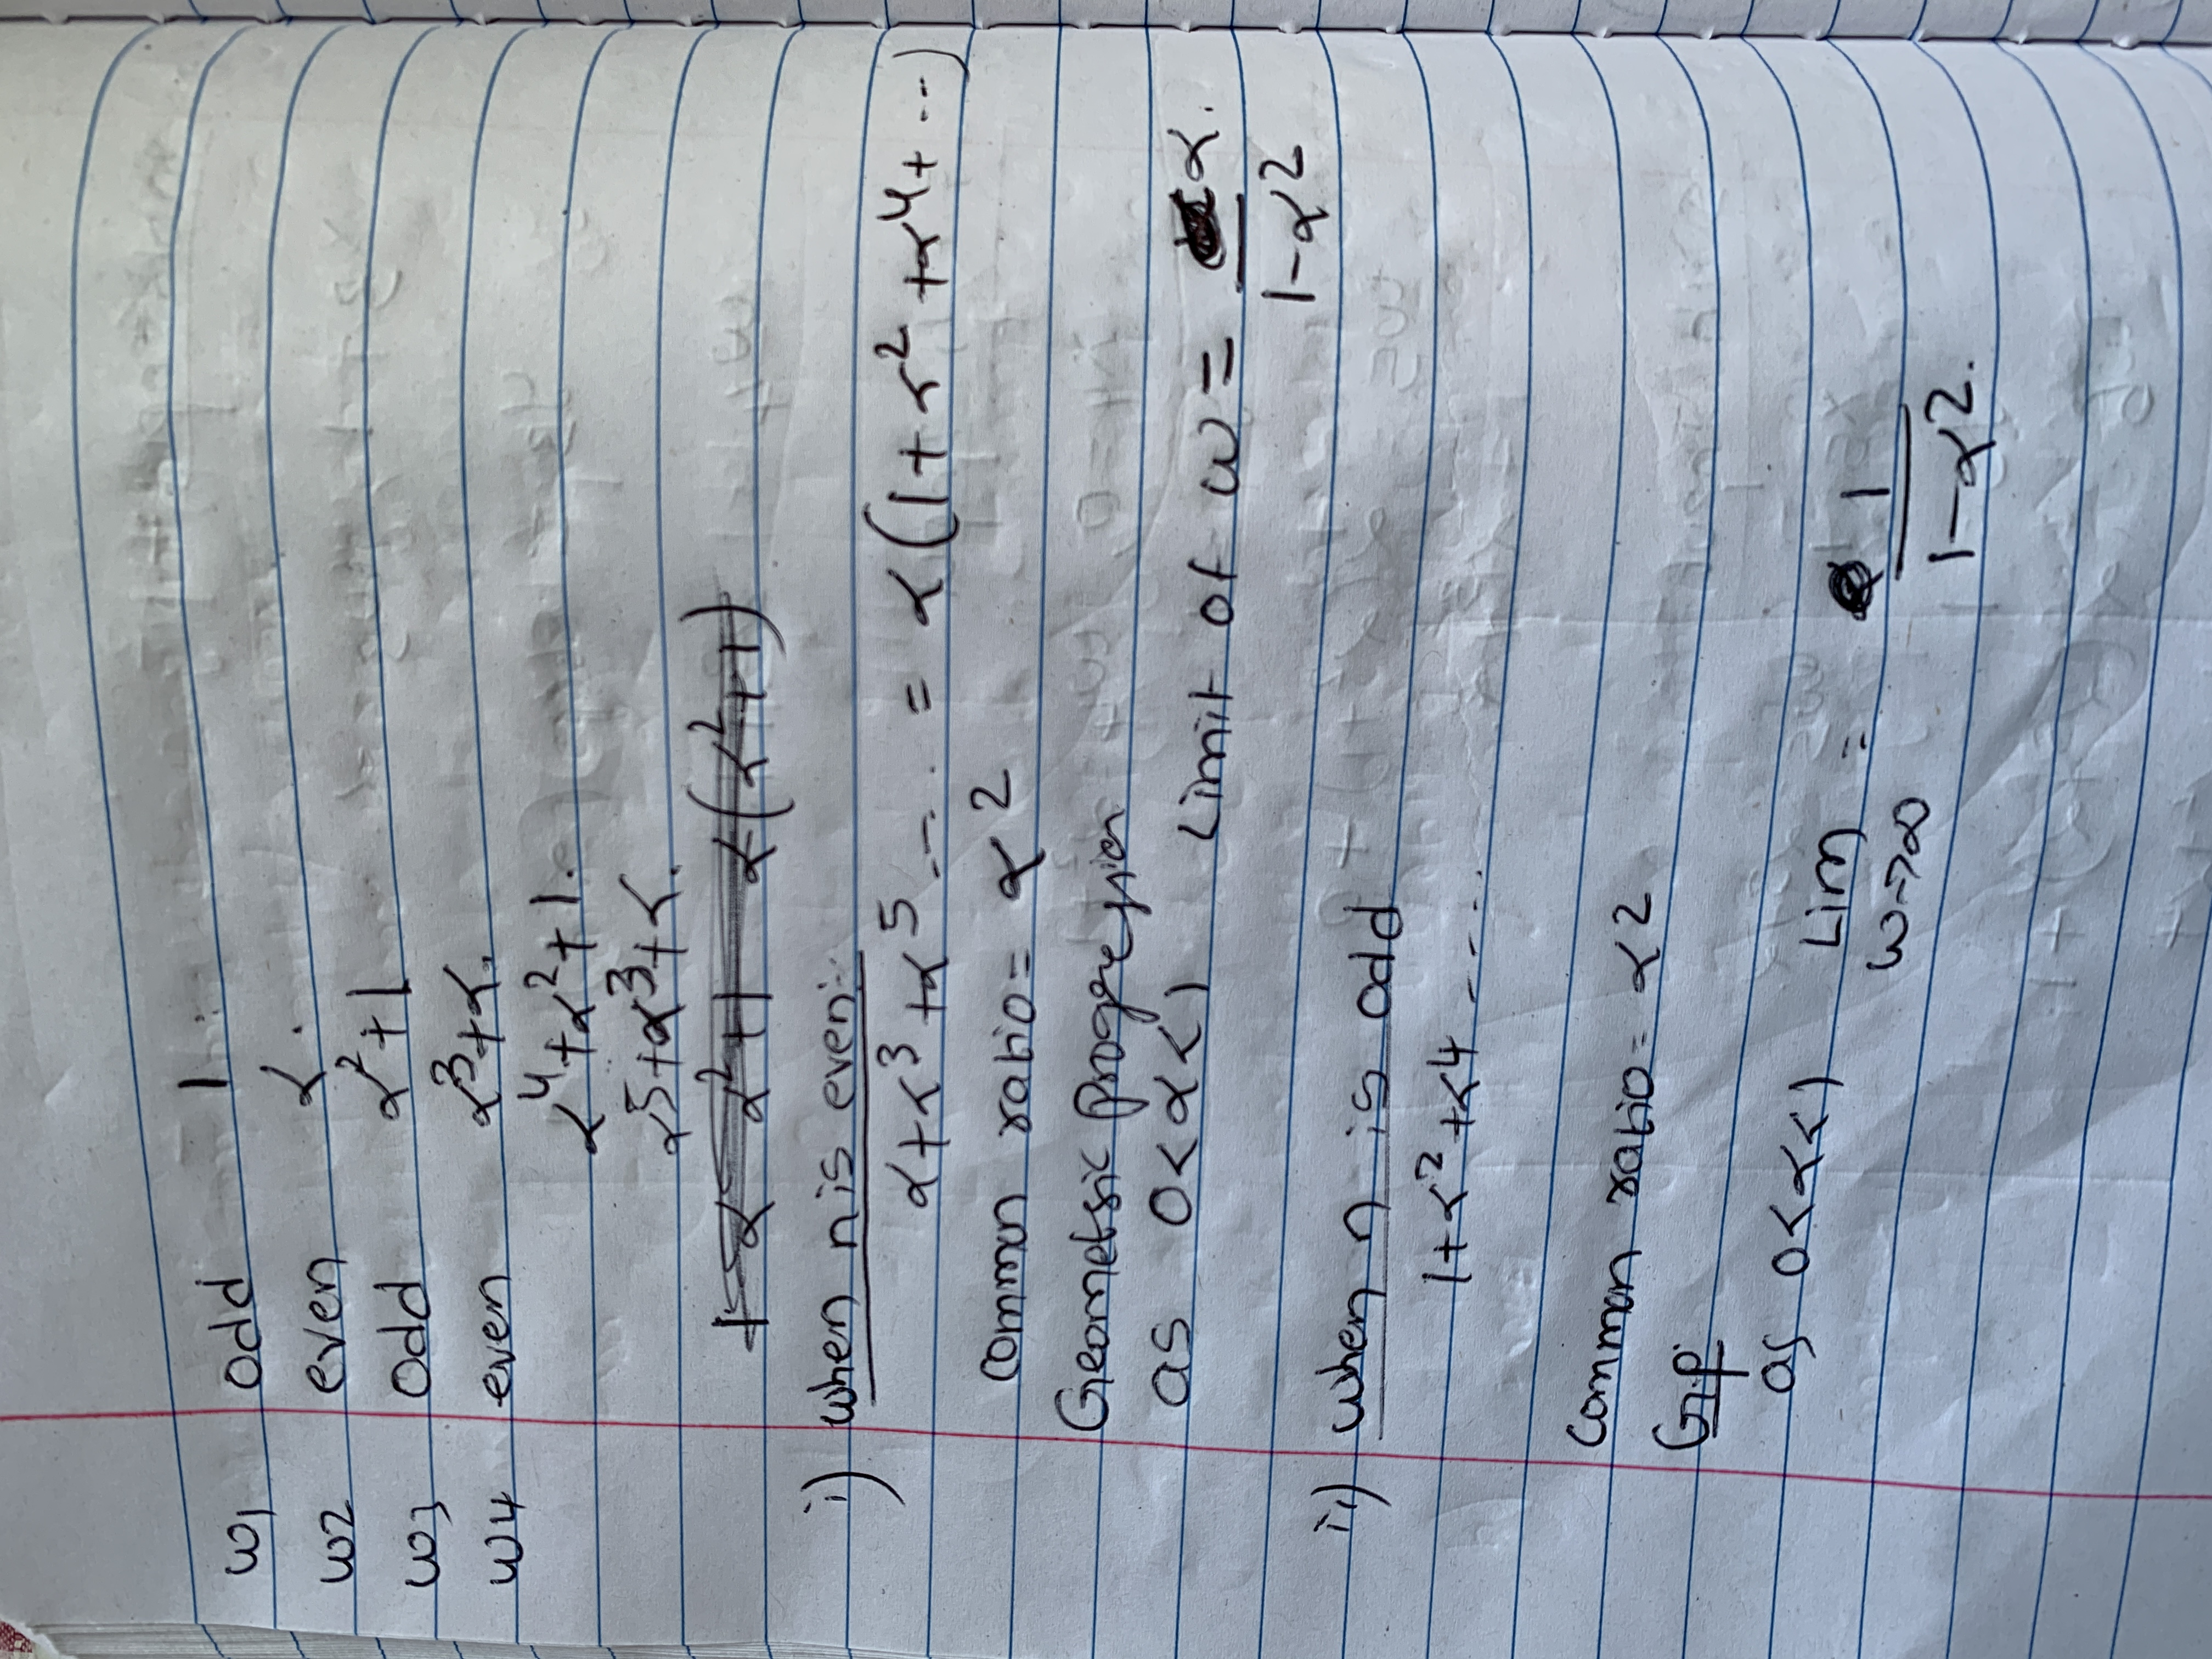 ω1 odd 1
ω2 even α.
ω3 odd α²+1
ω4 even α³+α.
α⁴+α²+1.
α⁵+α³+α.
1 α α²+1 α(α²+1)
i) when n is even:-
α+α³+α⁵ --.. = α(1+α²+α⁴+...)
common ratio = α²
Geometric progression
as 0<α<1 Limit of ω = α.
1-α²
ii) when n is odd
1+α²+α4 ----..
Common ratio = α2
G.p
as 0<α<1 Lim = 1
ω→∞ 1-α2.